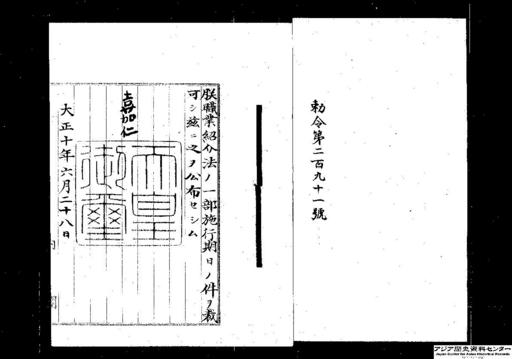 勅令第二百九十一號
朕職業紹介法ノ一部施行期日ノ件ヲ裁
可シ茲ニ之ヲ公布セシム
嘉仁
天皇
御璽
大正十年六月二十八日
内閣
アジア歴史資料センター
Japan Center for Asian Historical Records